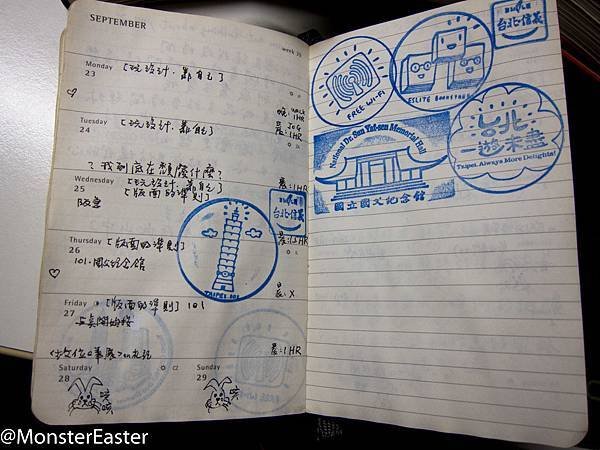 SEPTEMBER
week 39
Monday
23
[玩設計.靠自己]
晚: WALK
1HR
Tuesday
24
[玩設計.靠自己]
JOG
晨:1HR
?我到底在想麼什麼?
Wednesday
25
[玩設計.靠自己]
[版面的準則]
晨:1HR
台北·信義
Thursday
26
[版面的準則]
101.國父紀念館
TAIPEI 101
晨:X
Friday
27
[版面的準則] 101
晨:1HR
Saturday
28
Sunday
29
FREE Wi-Fi
ESLITE BOOKSTORE
台北·信義
National Dr. Sun Yat-sen Memorial Hall
國立國父紀念館
台北
一遊未盡
Taipei, Always More Delights!
@MonsterEaster